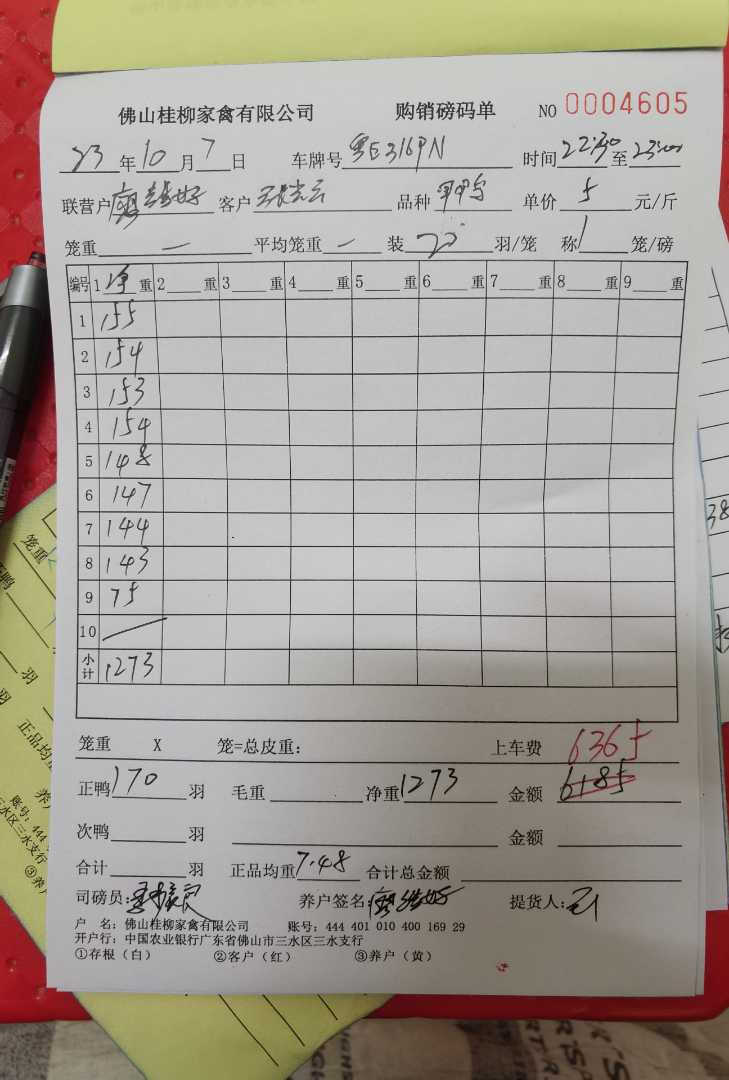 佛山桂柳家禽有限公司 购销磅码单 NO 0004605
23年10月7日 车牌号 粤E316PN 时间22:30至23:00
联营户 客户 品种 单价 5 元/斤
笼重 — 平均笼重 — 装 20 羽/笼 称 1 笼/磅
编号 1 净 重 2 重 3 重 4 重 5 重 6 重 7 重 8 重 9 重
1 155
2 154
3 153
4 154
5 148
6 147
7 144
8 143
9 75
10
小计 1273
笼重 X 笼=总皮重: 上车费 6365
正鸭 170 羽 毛重 净重 1273 金额 6185
次鸭 羽 金额
合计 羽 正品均重 7.48 合计总金额
司磅员: 养户签名: 提货人:
户 名: 佛山桂柳家禽有限公司 账号: 444 401 010 400 169 29
开户行: 中国农业银行广东省佛山市三水区三水支行
①存根(白) ②客户(红) ③养户(黄)
笼重
鸭
羽
羽
正品均
账号: 444
水区三水支行
③养户
38